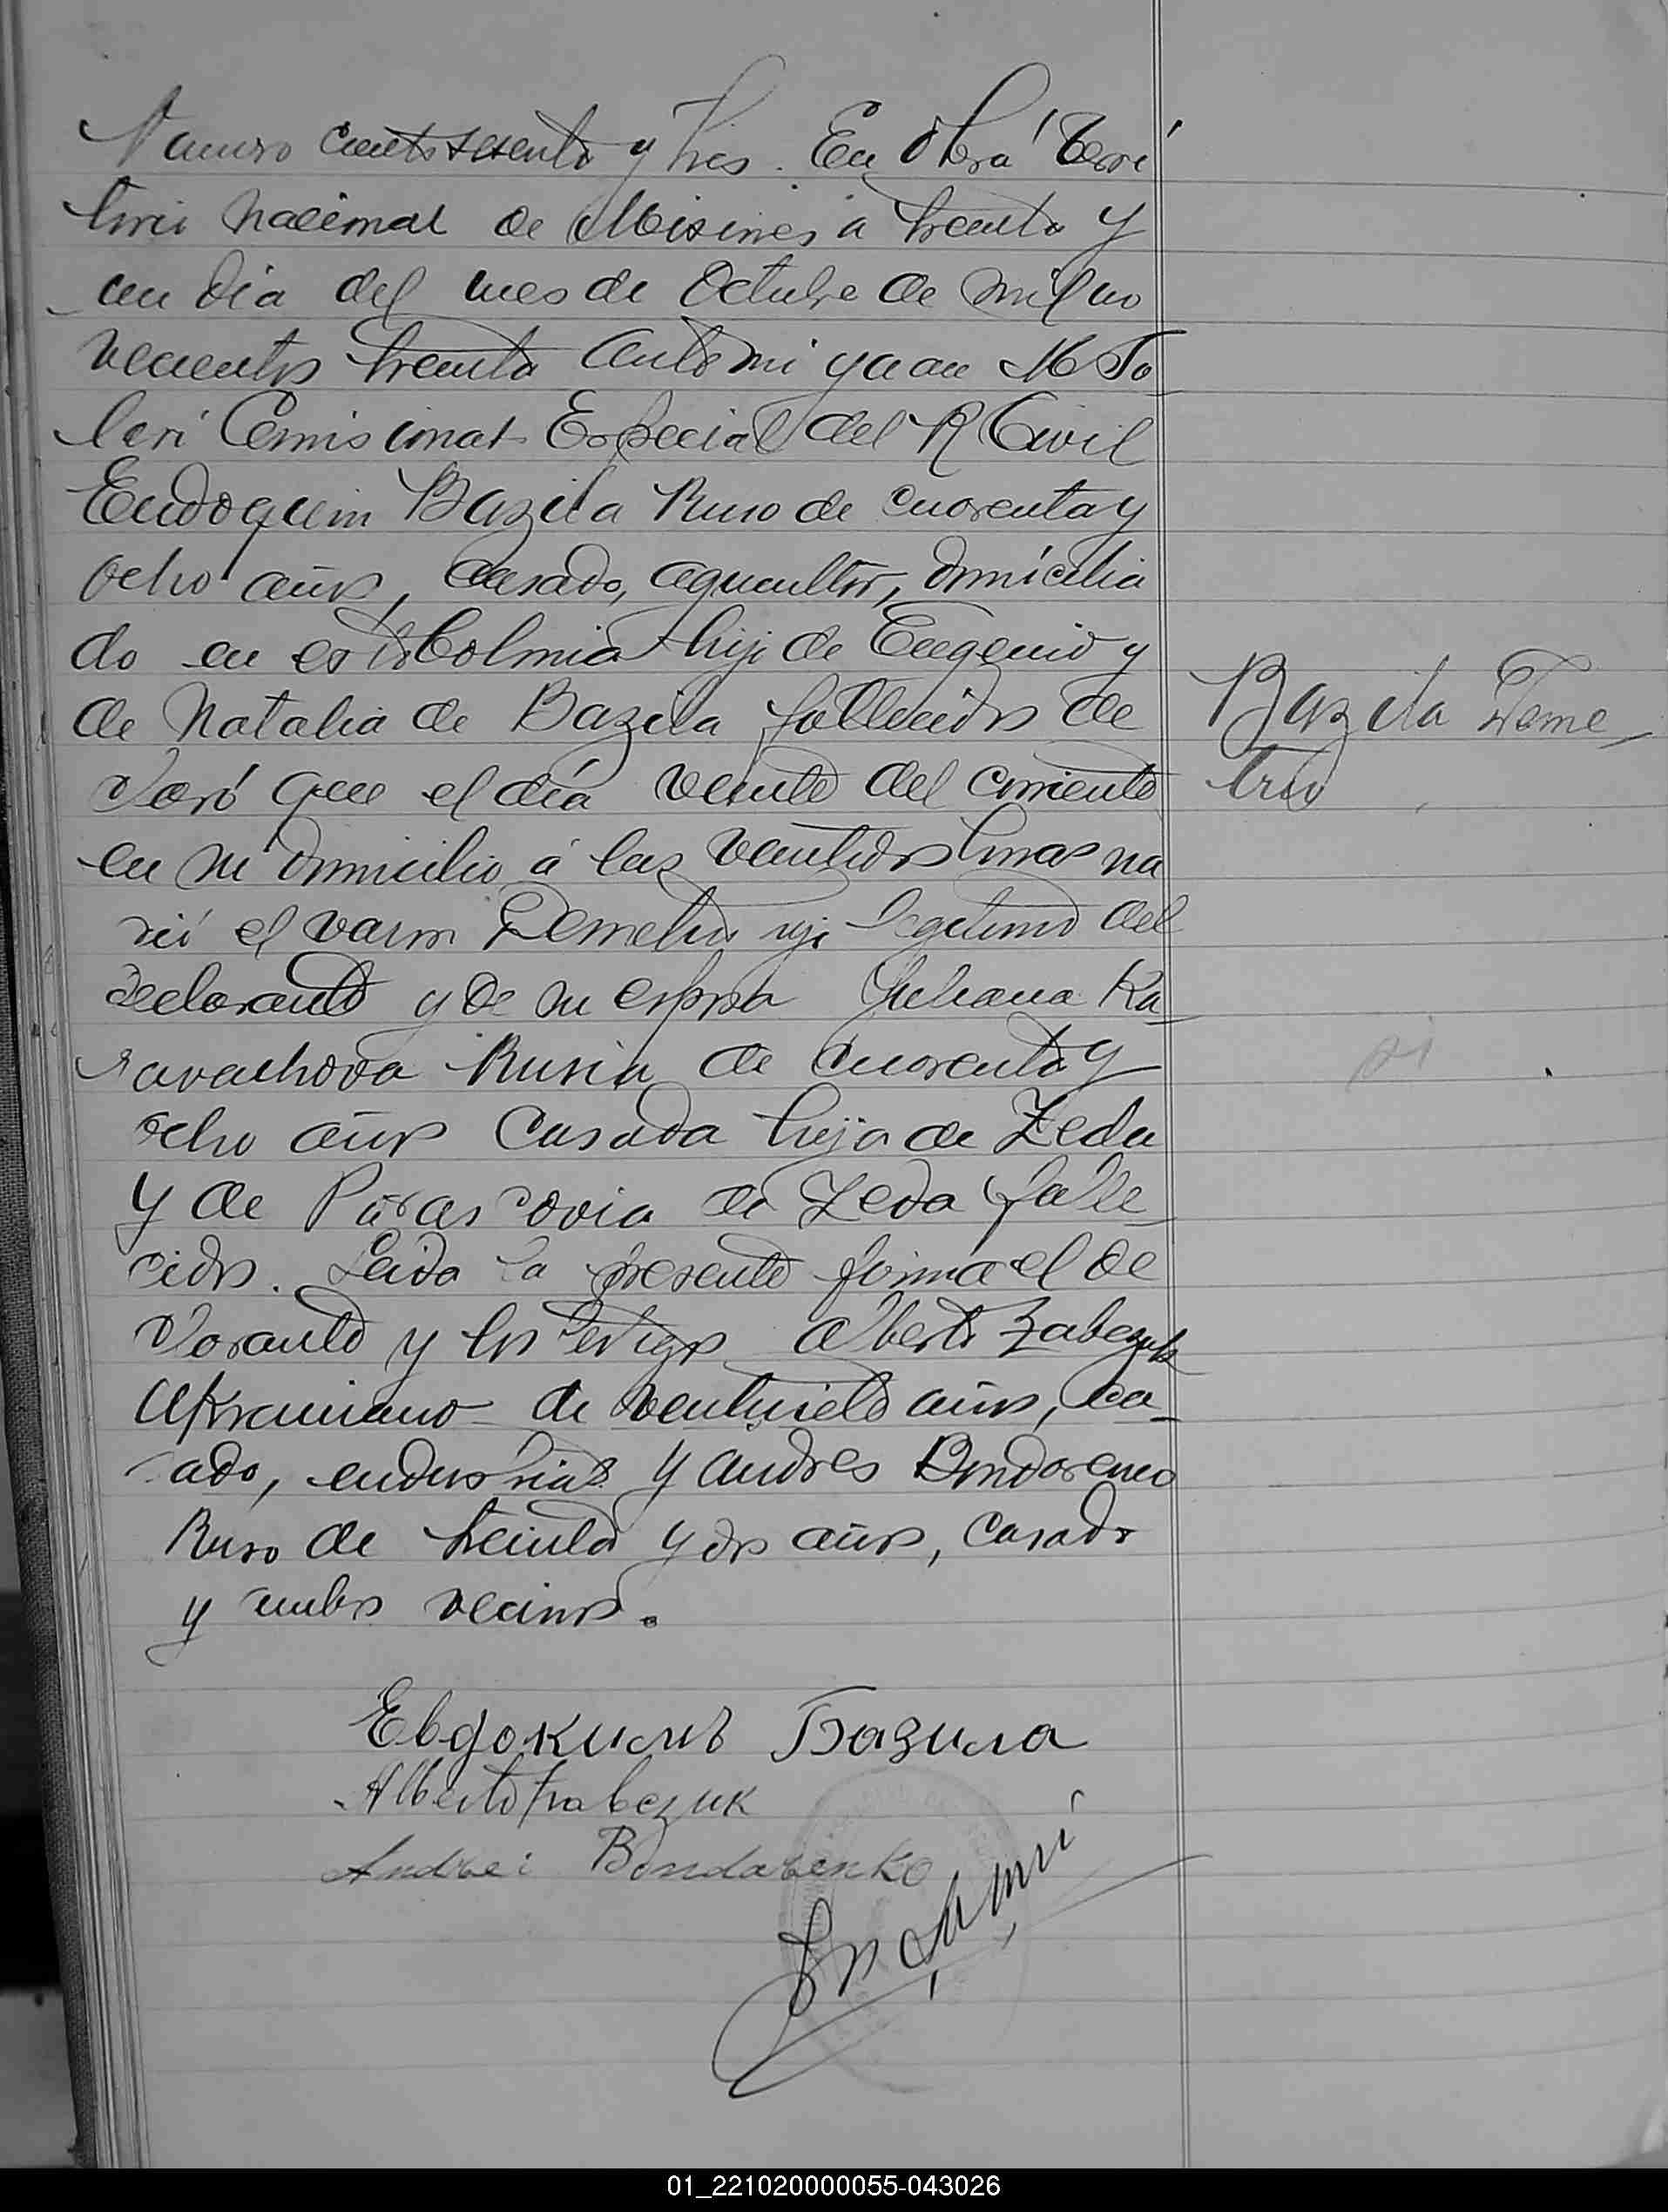 Numero ciento sesenta y tres. En Oberá Terri
torio Nacional de Misiones a treinta y
un dia del mes de Octubre de mil no
vecientos treinta Ante mi Juan M
Comisionat Especial del R Civil
Eudoquim Bazila Ruso de cuarenta y
ocho años, casado, agricultor, domicilia
do en esta Colonia hijo de Eugenio y
de Natalia de Bazila fallecidos de
claró que el día veinte del corriente
en su domicilio á las veintidos horas na
ció el varon Demetrio ijo legitimo del
declarante y de su esposa Juliana Ka
ravachova Rusia de cuarenta y
ocho años Casada hija de Zeda
y de Parascovia de Zeda falle
cidos. Leida la presente firma el de
clarante y los testigos Alberto Trabczuk
Ukraniano de ventisiete años, ca
sado, endustrial y Andres Bondarenco
Ruso de treinta y dos años, casado
y ambos vecinos.
Bazila Deme
trio
Евдокимъ Базила
Alberto Trabczuk
Andrei Bondarenko